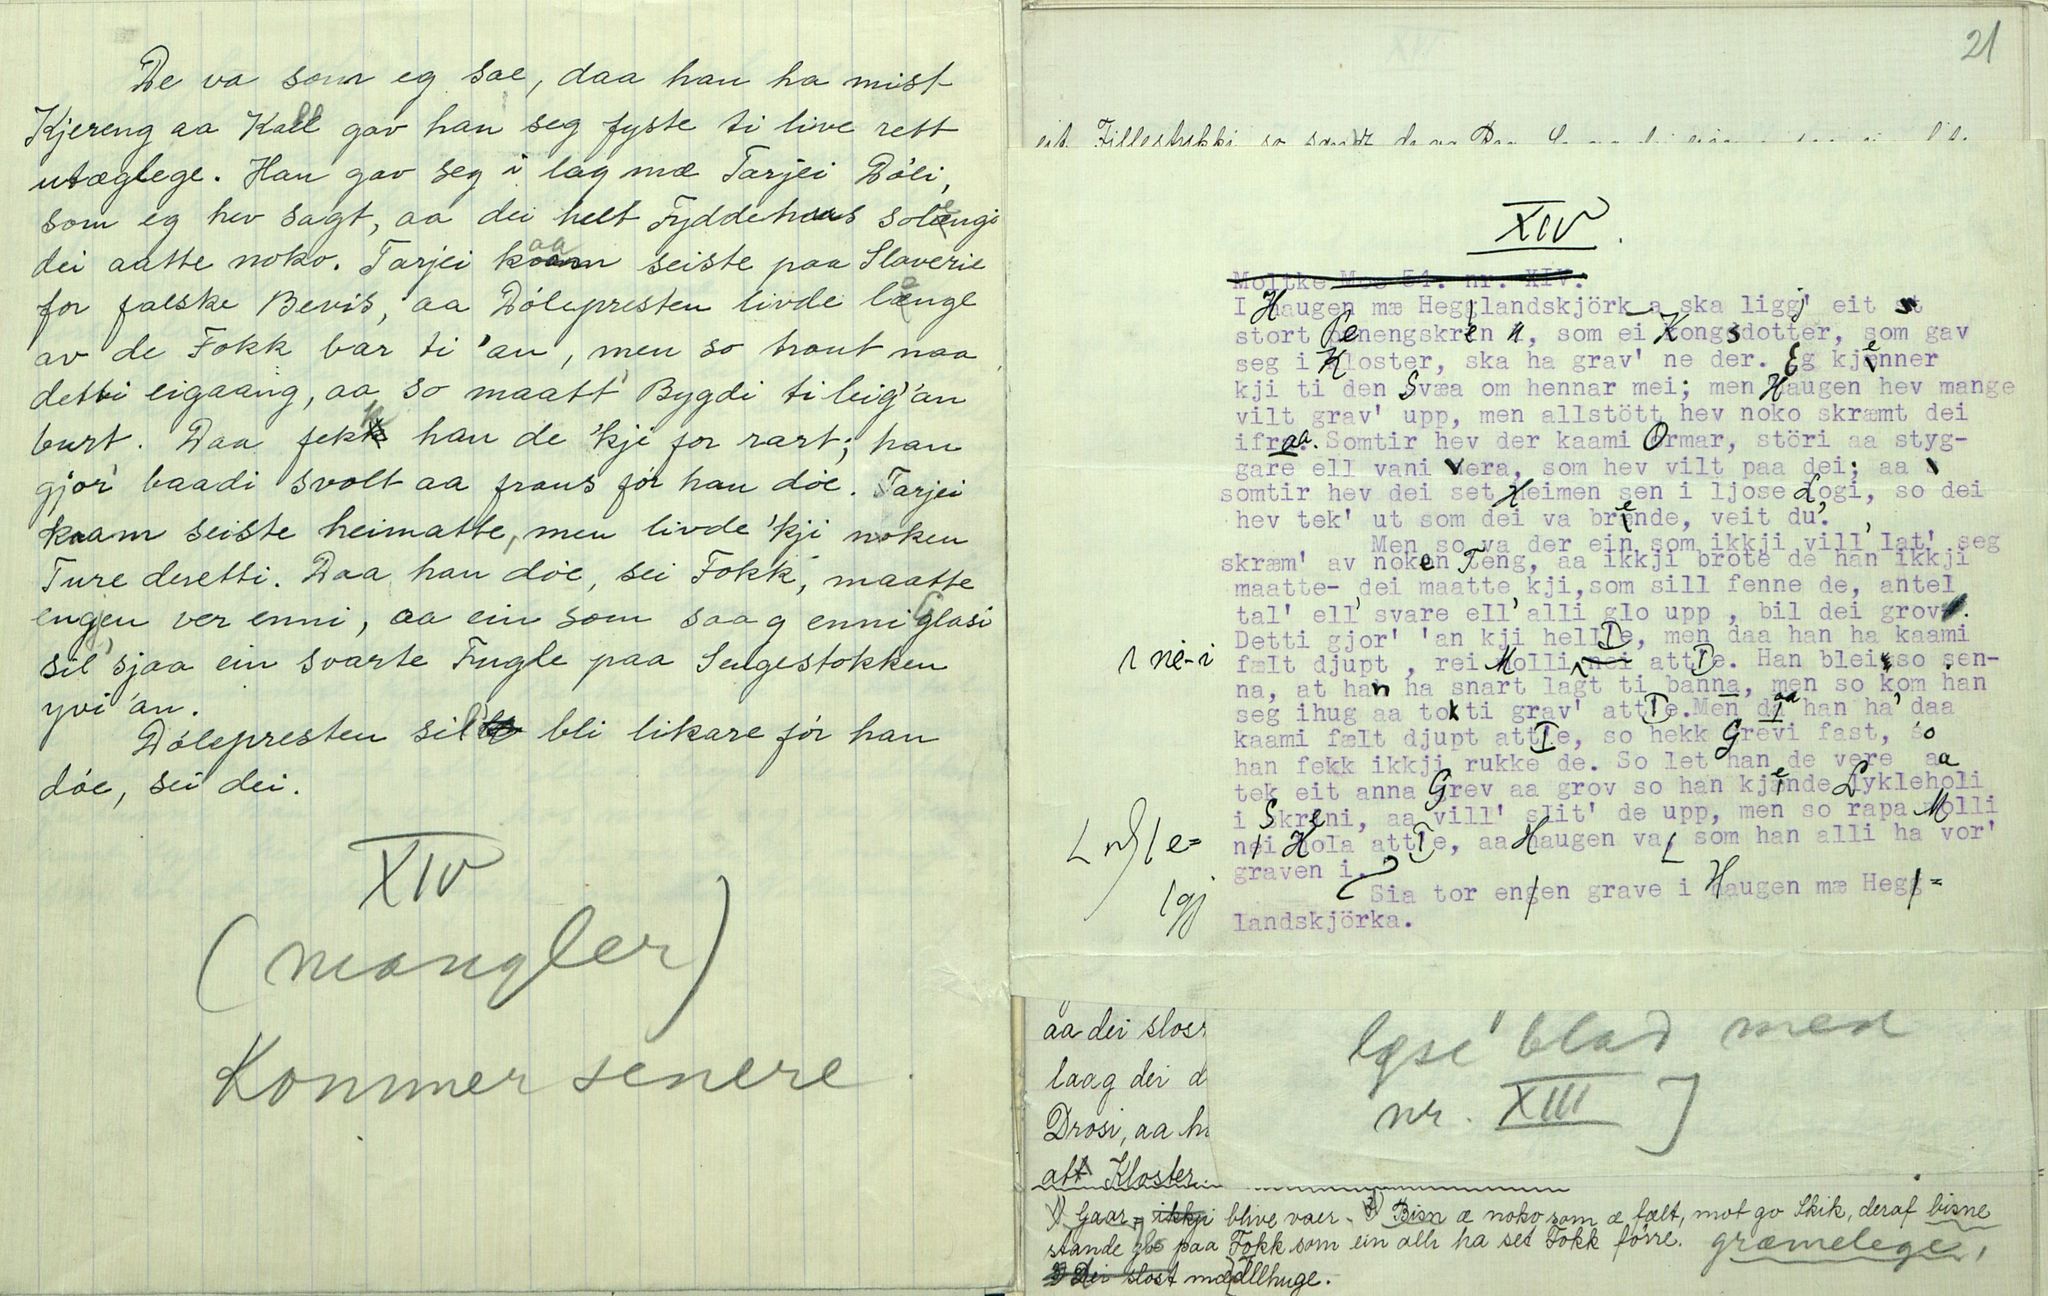 De va som eg sae, daa han ha mist
Kjereng aa Kall gav han seg fyste ti live rett
utæglege. Han gav seg i lag mæ Tarjei Dóli,
som eg hev sagt, aa dei helt Fyddehaus solengi
dei aatte noko. Tarjei kaam seiste paa Slaverie
for falske Bevis, aa Dólepresten livde lenge
av de Fokk bar ti 'an, men so traut naa
detti eigaang, aa so maatt' Bygdi ti leig' 'an
burt. Daa fekk han de 'kji for rart; han
gjor' baadi svolt aa fraus fór han dóe. Tarjei
kaam seiste heimatte, men livde 'kji noken
Ture deretti. Daa han dóe, sei Fokk, maatte
engjen ver enni, aa ein som saag enni Glasi
sil' sjaa ein svarte Fugle paa Sengestokken
yvi 'an.
Dólepresten sill bli likare fór han
dóe, sei dei.
XIV
(mangler)
Kommer senere.
21
eit Fillestykki so
XIV.
Moltke Moe 54. nr. XIV.
I Haugen mæ Hegglandskjörk a ska liggj' eit
stort Penengskren, som ei Kongsdotter, som gav
seg i Kloster, ska ha grav' ne der. Eg kjenner
kji ti den Svæa om hennar mei; men Haugen hev mange
vilt grav' upp, men allstött hev noko skræmt dei
ifraa. Somtir hev der kaami Ormar, störi aa styg-
gare ell vani vera, som hev vilt paa dei; aa
somtir hev dei set Heimen sen i ljose Logi, so dei
hev tek' ut som dei va brende, veit du.
Men so va der ein som ikkji vill' lat' seg
skræm' av noken Teng, aa ikkji brote de han ikkji
maatte- dei maatte kji, som sill fenne de, antel
tal' ell' svare ell' alli glo upp, bil dei grov.
Detti gjor' 'an kji hell De, men daa han ha kaami
i ne-i
fælt djupt, rei Molli nei attIe. Han blei so sen-
na, at han ha snart lagt ti banna, men so kom han
seg ihug aa tok ti grav' attIe. Men daa han ha' daa
kaami fælt djupt attIe, so hekk Grevi fast, so
han fekk ikkji rukke de. So let han de vere aa
tek eit anna Grev aa grov so han kjende Lykleholi
i Skreni, aa vill' slit' de upp, men so rapa Molli
nei Hola attIe, aa Haugen va, som han alli ha vor'
graven i.
Sia tor engen grave i Haugen mæ Hegg=
landskjörka.
lgj
aa dei slost
laag dei d
Drosi, aa h
att Kloster
[øst blad med
nr. XIII]
1) Gaar ikkji blive vaer. 2) Bisn æ noko som æ fælt, mot go Skik, deraf bisne
stande glo paa Fokk som ein alli ha set Fokk fórre. græmelege,
3 Dei slost mæ Allhuge.